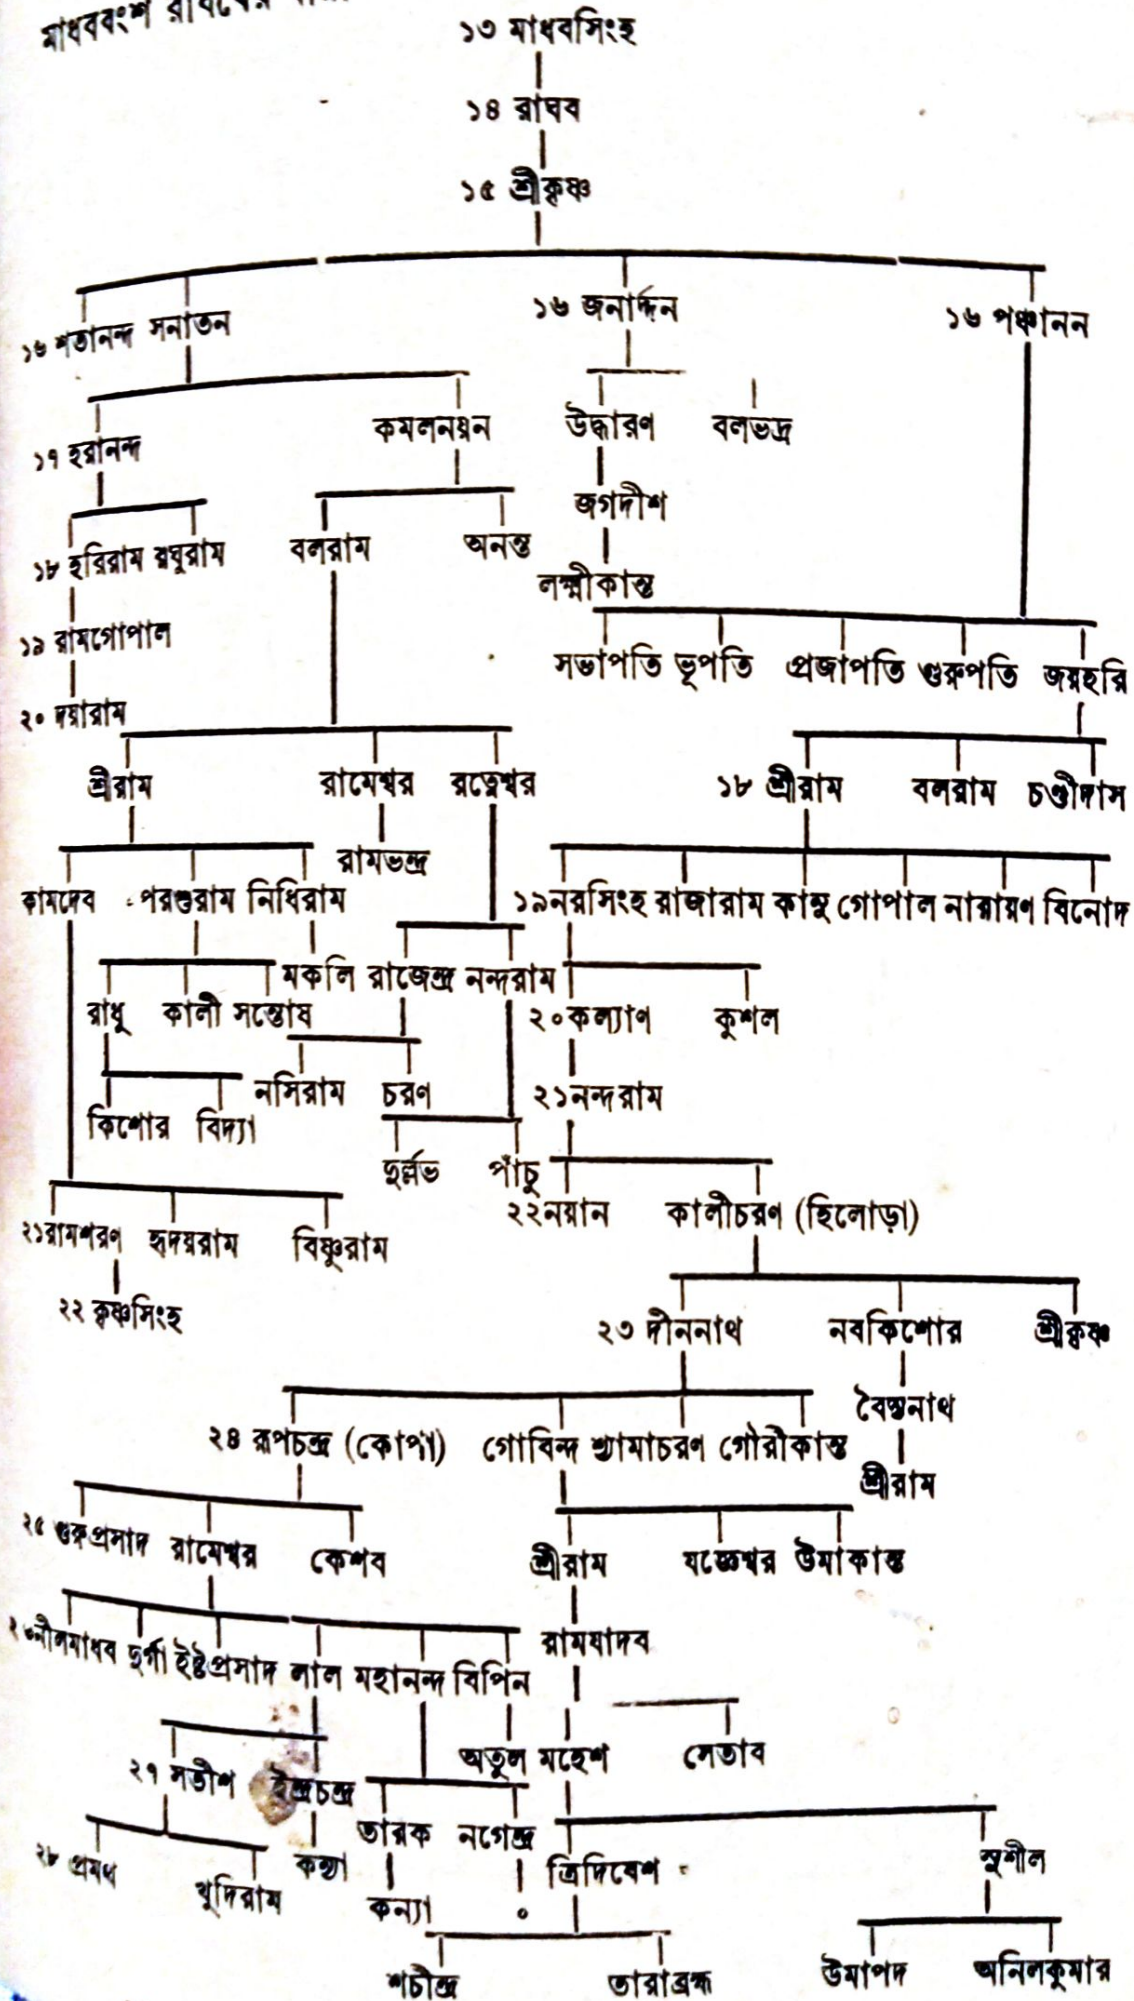 মাধববংশ রাঘবের
১৩ মাধবসিংহ
১৪ রাঘব
১৫ শ্রীকৃষ্ণ
১৬ শতানন্দ সনাতন ১৬ জনার্দ্দন ১৬ পঞ্চানন
১৭ হরানন্দ কমলনয়ন উদ্ধারণ বলভদ্র
জগদীশ
১৮ হরিরাম রঘুরাম বলরাম অনন্ত
লক্ষ্মীকান্ত
১৯ রামগোপাল
সভাপতি ভূপতি প্রজাপতি গুরুপতি জয়হরি
২০ দয়ারাম
শ্রীরাম রামেশ্বর রত্নেশ্বর ১৮ শ্রীরাম বলরাম চণ্ডীদাস
রামভদ্র
কামদেব পরশুরাম নিধিরাম ১৯নরসিংহ রাজারাম কানু গোপাল নারায়ণ বিনোদ
মকলি রাজেন্দ্র নন্দরাম
রাধু কালী সন্তোষ ২০কল্যাণ কুশল
নসিরাম চরণ ২১নন্দরাম
কিশোর বিদ্যা
দুর্ল্লভ পাঁচু
২২নয়ান কালীচরণ (হিলোড়া)
২১রামশরণ হৃদয়রাম বিষ্ণুরাম
২২ কৃষ্ণসিংহ
২৩ দীননাথ নবকিশোর শ্রীকৃষ্ণ
বৈদ্যনাথ
২৪ রূপচন্দ্র (কোপা) গোবিন্দ শ্যামাচরণ গৌরীকান্ত
শ্রীরাম
২৫ গুরুপ্রসাদ রামেশ্বর কেশব শ্রীরাম যজ্ঞেশ্বর উমাকান্ত
রামযাদব
২৬নীলমাধব দুর্গা ইষ্টপ্রসাদ লাল মহানন্দ বিপিন
অতুল মহেশ সেতাব
২৭ সতীশ ইন্দ্রচন্দ্র
তারক নগেন্দ্র
২৮ প্রমথ খুদিরাম কন্যা ত্রিদিবেশ সুশীল
কন্যা ০
শচীন্দ্র তারাব্রহ্ম উমাপদ অনিলকুমার